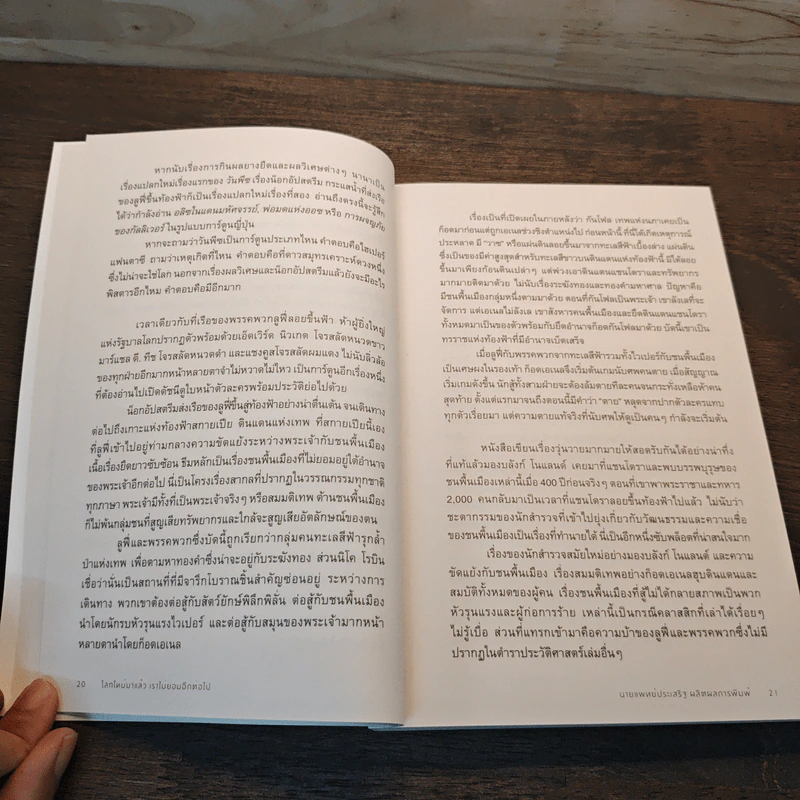 หากนับเรื่องการกินผลยางยืดและผลวิเศษต่างๆ นานาเป็น
เรื่องแปลกใหม่เรื่องแรกของ วันพีซ เรื่องน็อกอัปสตรีม กระแสน้ำที่ส่งเรือ
ของลูฟี่ขึ้นท้องฟ้าก็เป็นเรื่องแปลกใหม่เรื่องที่สอง อ่านถึงตรงนี้จะรู้สึก
ได้ว่ากำลังอ่าน อลิซในแดนมหัศจรรย์, พ่อมดแห่งออซ หรือ การผจญภัย
ของกัลลิเวอร์ ในรูปแบบการ์ตูนญี่ปุ่น
หากจะถามว่าวันพีซเป็นการ์ตูนประเภทไหน คำตอบคือไฮเปอร์
แฟนตาซี ถามว่าเหตุเกิดที่ไหน คำตอบคือที่ดาวสมุทรเคราะห์ดวงหนึ่ง
ซึ่งไม่น่าจะใช่โลก นอกจากเรื่องผลวิเศษและน็อกอัปสตรีมแล้วยังจะมีอะไร
พิสดารอีกไหม คำตอบคือมีอีกมาก
เวลาเดียวกับที่เรือของพรรคพวกลูฟี่ลอยขึ้นฟ้า ห้าผู้ยิ่งใหญ่
แห่งรัฐบาลโลกปรากฏตัวพร้อมด้วยเอ็ดเวิร์ด นิวเกต โจรสลัดหนวดขาว
มาร์แชล ดี. ทีช โจรสลัดหนวดดำ และแชงคูสโจรสลัดผมแดง ไม่นับลิ่วล้อ
ของทุกฝ่ายอีกมากหน้าหลายตาจำไม่หวาดไม่ไหว เป็นการ์ตูนอีกเรื่องหนึ่ง
ที่ต้องอ่านไปเปิดดัชนีดูใบหน้าตัวละครพร้อมประวัติย่อไปด้วย
น็อกอัปสตรีมส่งเรือของลูฟี่ขึ้นสู่ท้องฟ้าอย่างน่าตื่นเต้น จนเดินทาง
ต่อไปถึงเกาะแห่งท้องฟ้าสกายเปีย ดินแดนแห่งเทพ ที่สกายเปียนี้เอง
ที่ลูฟี่เข้าไปอยู่ท่ามกลางความขัดแย้งระหว่างพระเจ้ากับชนพื้นเมือง
เนื้อเรื่องยืดยาวซับซ้อน ธีมหลักเป็นเรื่องชนพื้นเมืองที่ไม่ยอมอยู่ใต้อำนาจ
ของพระเจ้าอีกต่อไป นี่เป็นโครงเรื่องสากลที่ปรากฏในวรรณกรรมทุกชาติ
ทุกภาษา พระเจ้ามีทั้งที่เป็นพระเจ้าจริงๆ หรือสมมติเทพ ด้านชนพื้นเมือง
ก็ไม่พ้นกลุ่มชนที่สูญเสียทรัพยากรและใกล้จะสูญเสียอัตลักษณ์ของตน
ลูฟี่และพรรคพวกซึ่งบัดนี้ถูกเรียกว่ากลุ่มคนทะเลสีฟ้ารุกล้ำ
ป่าแห่งเทพ เพื่อตามหาทองคำซึ่งน่าจะอยู่กับระฆังทอง ส่วนนิโค โรบิน
เชื่อว่านั่นเป็นสถานที่ที่มีจารึกโบราณชิ้นสำคัญซ่อนอยู่ ระหว่างการ
เดินทาง พวกเขาต้องต่อสู้กับสัตว์ยักษ์พิลึกพิลั่น ต่อสู้กับชนพื้นเมือง
นำโดยนักรบหัวรุนแรงไวเปอร์ และต่อสู้กับสมุนของพระเจ้ามากหน้า
หลายตานำโดยก็อดเอเนล
20 โลกใหม่มาแล้ว เราไม่ยอมอีกต่อไป
เรื่องเป็นที่เปิดเผยในภายหลังว่า กันโฟล เทพแห่งนภาเคยเป็น
ก็อดมาก่อนแต่ถูกเอเนลช่วงชิงตำแหน่งไป ก่อนหน้านี้ ที่นี่ได้เกิดเหตุการณ์
ประหลาด มี "วาซ" หรือแผ่นดินลอยขึ้นมาจากทะเลสีฟ้าเบื้องล่าง แผ่นดิน
ซึ่งเป็นของมีค่าสูงสุดสำหรับทะเลสีขาวบนดินแดนแห่งท้องฟ้านี้ มิได้ลอย
ขึ้นมาเพียงก้อนดินเปล่าๆ แต่พ่วงเอาดินแดนแชนโดราและทรัพยากร
มากมายติดมาด้วย ไม่นับเรื่องระฆังทองและทองคำมหาศาล ปัญหาคือ
มีชนพื้นเมืองกลุ่มหนึ่งตามมาด้วย ตอนที่กันโฟลเป็นพระเจ้า เขาลังเลที่จะ
จัดการ แต่เอเนลไม่ลังเล เขาสังหารคนพื้นเมืองและยึดดินแดนแชนโดรา
ทั้งหมดมาเป็นของตัวพร้อมกับยึดอำนาจก็อดกันโฟลมาด้วย บัดนี้เขาเป็น
ทรราชแห่งท้องฟ้าที่มีอำนาจเบ็ดเสร็จ
เมื่อลูฟี่กับพรรคพวกจากทะเลสีฟ้ารวมทั้งไวเปอร์กับชนพื้นเมือง
เป็นเศษผงในรองเท้า ก็อดเอเนลจึงเริ่มต้นเกมนับศพคนตาย เมื่อสัญญาณ
เริ่มเกมดังขึ้น นักสู้ทั้งสามฝ่ายจะต้องล้มตายทีละคนจนกระทั่งเหลือห้าคน
สุดท้าย ตั้งแต่แรกมาจนถึงตอนนี้มีคำว่า "ตาย" หลุดจากปากตัวละครแทบ
ทุกตัวเรื่อยมา แต่ความตายแท้จริงที่นับศพให้ดูเป็นคนๆ กำลังจะเริ่มต้น
หนังสือเขียนเรื่องวุ่นวายมากมายให้สอดรับกันได้อย่างน่าทึ่ง
ที่แท้แล้วมองบลังก์ โนแลนด์ เคยมาที่แชนโดราและพบบรรพบุรุษของ
ชนพื้นเมืองเหล่านี้เมื่อ 400 ปีก่อนจริงๆ ตอนที่เขาพาพระราชาและทหาร
2,000 คนกลับมาเป็นเวลาที่แชนโดราลอยขึ้นท้องฟ้าไปแล้ว ไม่นับว่า
ชะตากรรมของนักสำรวจที่เข้าไปยุ่งเกี่ยวกับวัฒนธรรมและความเชื่อ
ของชนพื้นเมืองเป็นเรื่องที่ทำนายได้ นี่เป็นอีกหนึ่งซับพล็อตที่น่าสนใจมาก
เรื่องของนักสำรวจสมัยใหม่อย่างมองบลังก์ โนแลนด์ และความ
ขัดแย้งกับชนพื้นเมือง เรื่องสมมติเทพอย่างก็อดเอเนลฮุบดินแดนและ
สมบัติทั้งหมดของผู้คน เรื่องชนพื้นเมืองที่สู้ไม่ได้กลายสภาพเป็นพวก
หัวรุนแรงและผู้ก่อการร้าย เหล่านี้เป็นกรณีคลาสสิกที่เล่าได้เรื่อยๆ
ไม่รู้เบื่อ ส่วนที่แทรกเข้ามาคือความบ้าของลูฟี่และพรรคพวกซึ่งไม่มี
ปรากฏในตำราประวัติศาสตร์เล่มอื่นๆ
นายแพทย์ประเสริฐ ผลิตผลการพิมพ์ 21